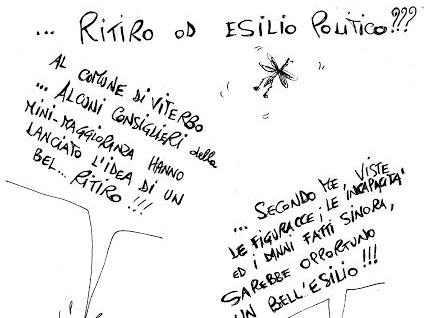 ... RITIRO OD ESILIO POLITICO???
AL COMUNE DI VITERBO
... ALCUNI CONSIGLIERI della
MINI-MAGGIORANZA HANNO
LANCIATO L'IDEA DI UN
BEL... RITIRO!!!
... SECONDO ME, VISTE
LE FIGURACCE, LE INCAPACITA'
ED I DANNI FATTI SINORA,
SAREBBE OPPORTUNO
UN BELL'ESILIO!!!